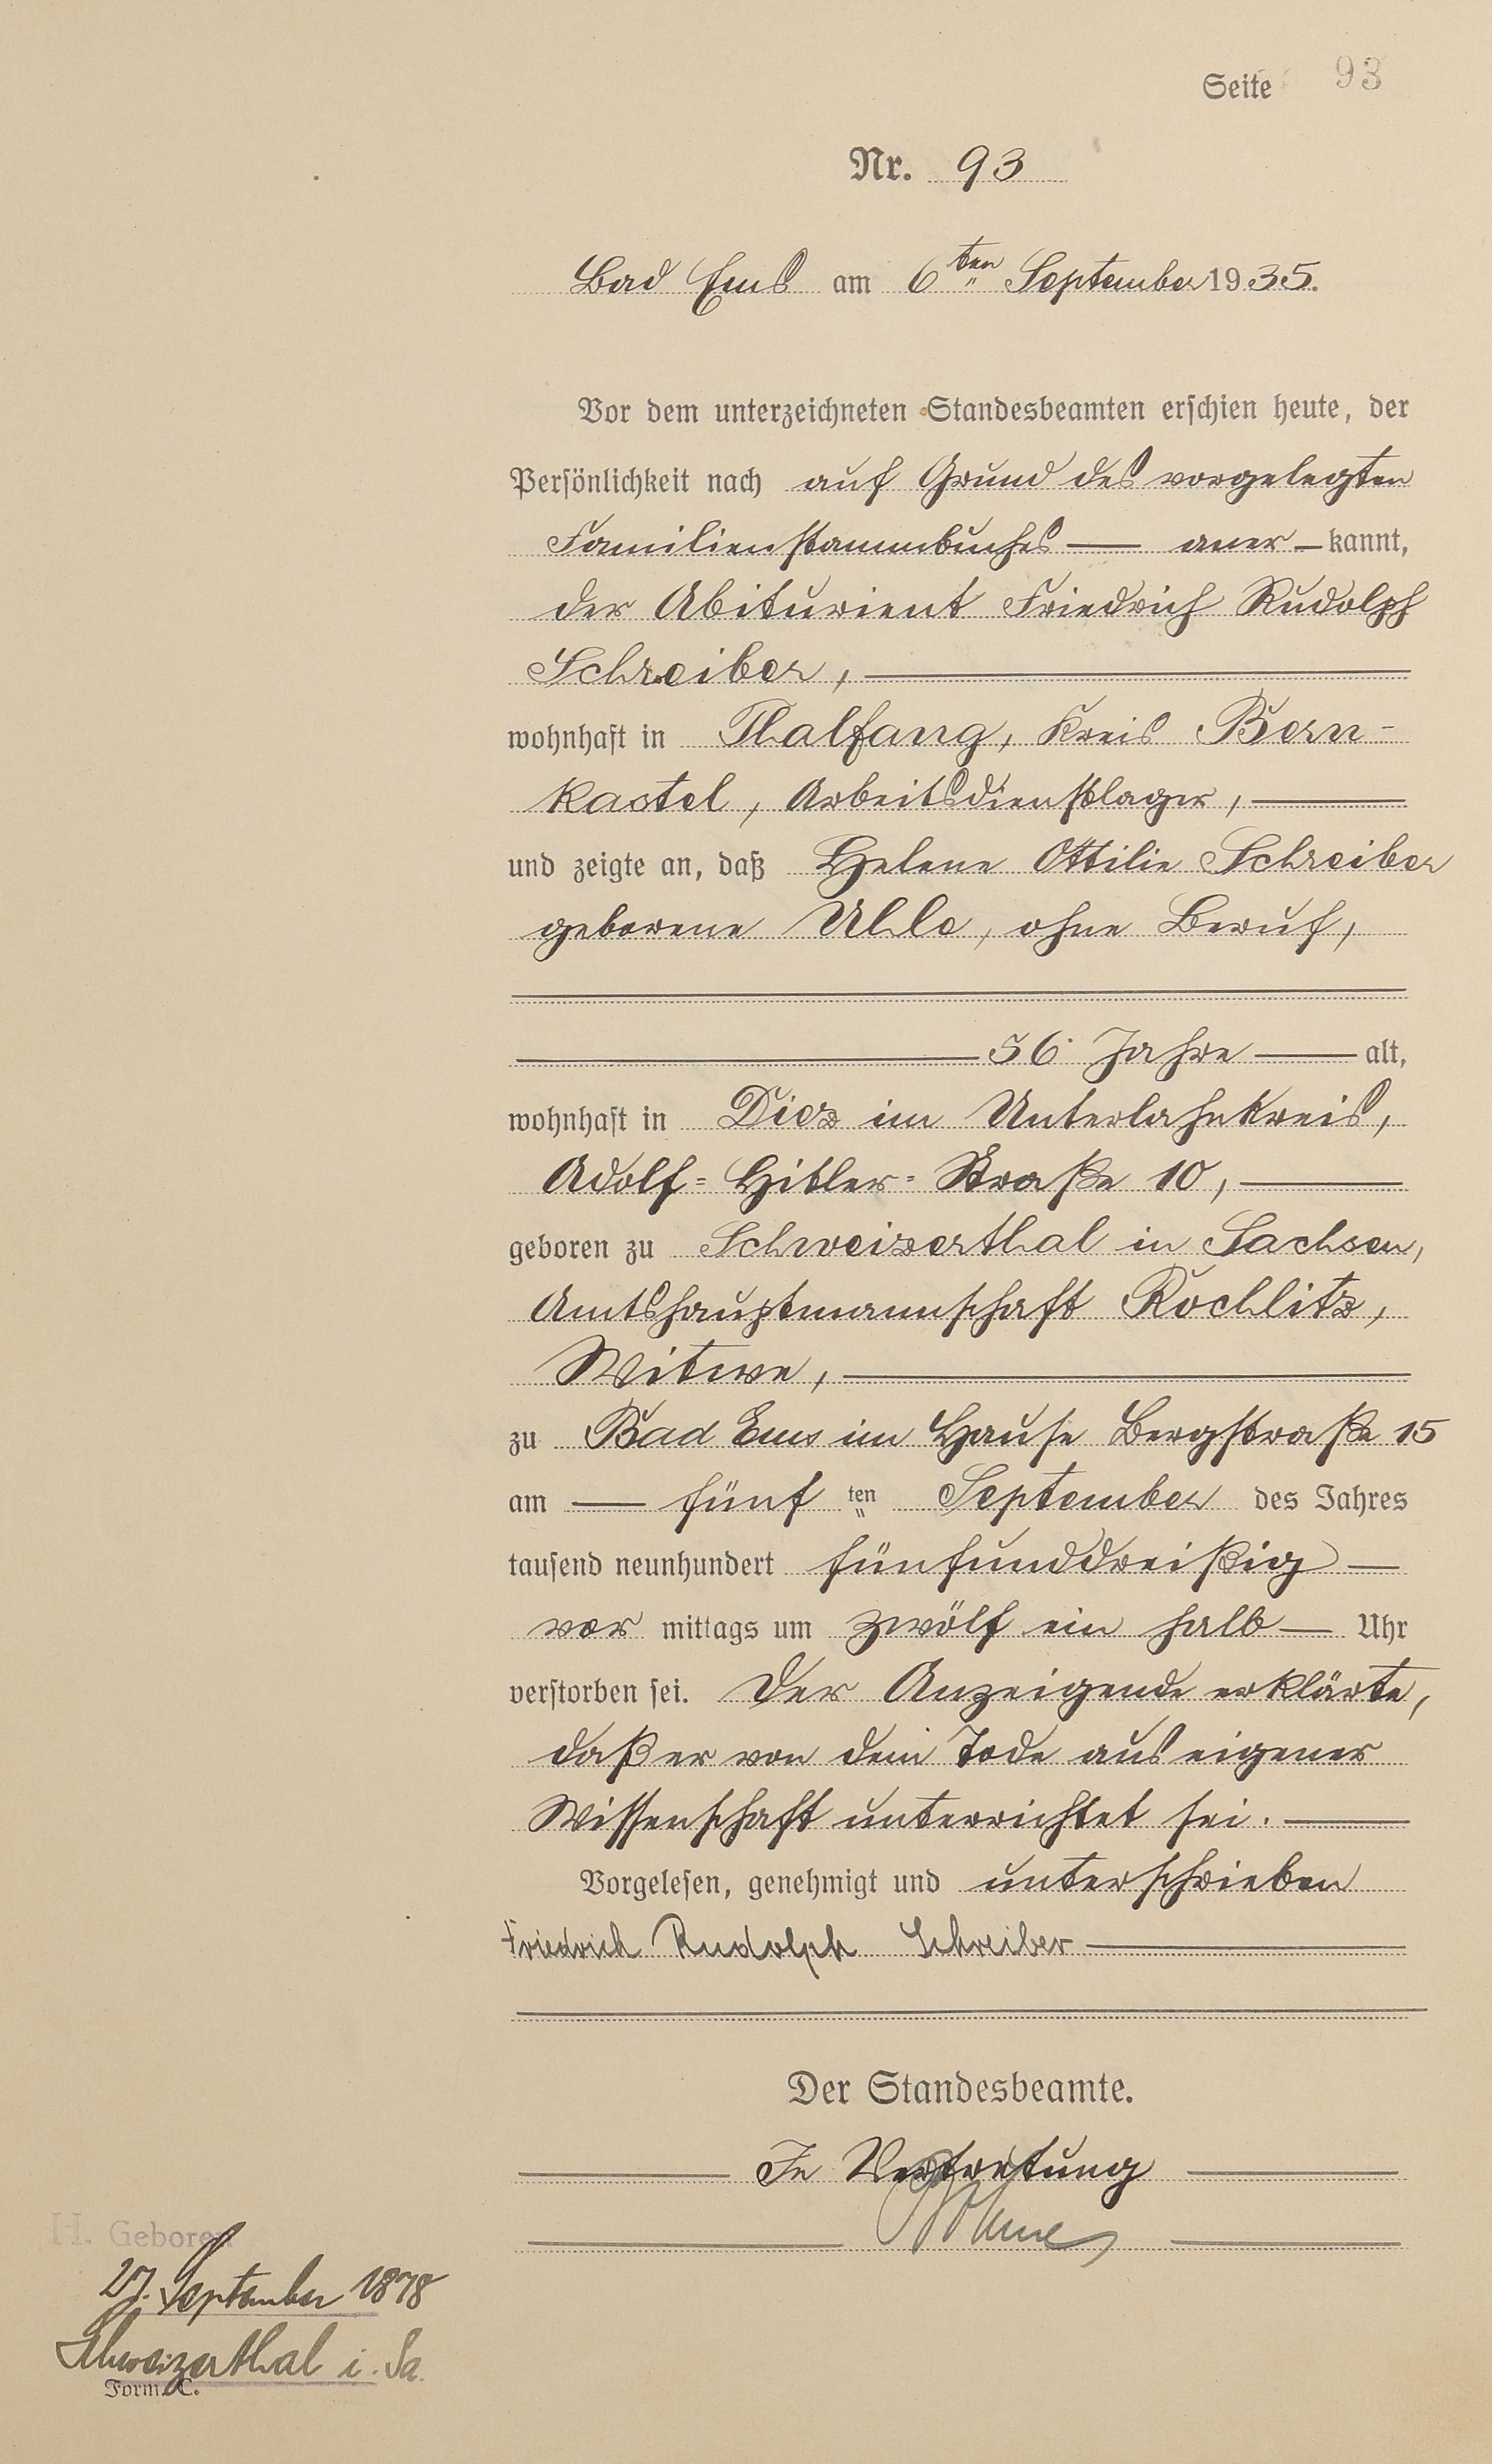 Seite 93
Nr. 93
Bad Ems am 6ten September 1935.
Vor dem unterzeichneten Standesbeamten erschien heute, der
Persönlichkeit nach auf Grund des vorgelegten
Familienstammbuches — aner — kannt,
der Abiturient Friedrich Rudolph
Schreiber, —
wohnhaft in Thalfang, Kreis Bern-
kastel, Arbeitsdienstlager, —
und zeigte an, daß Helene Ottilie Schreiber
geborene Uhle, ohne Beruf,
— 56 Jahre — alt,
wohnhaft in Diez im Unterlahnkreis,
Adolf=Hitler=Straße 10, —
geboren zu Schweizerthal in Sachsen,
Amtshauptmannschaft Rochlitz,
Witwe, —
zu Bad Ems im Hause Bergstraße 15
am — fünf ten September des Jahres
tausend neunhundert fünfunddreißig —
vor mittags um zwölf ein halb — Uhr
verstorben sei. Der Anzeigende erklärte,
daß er von dem Tode aus eigener
Wissenschaft unterrichtet sei. —
Vorgelesen, genehmigt und unterschrieben
Friedrich Rudolph Schreiber —
Der Standesbeamte.
— In Vertretung —
H. Geboren
27. September 1878
Schweizerthal i. Sa.
Form. C.